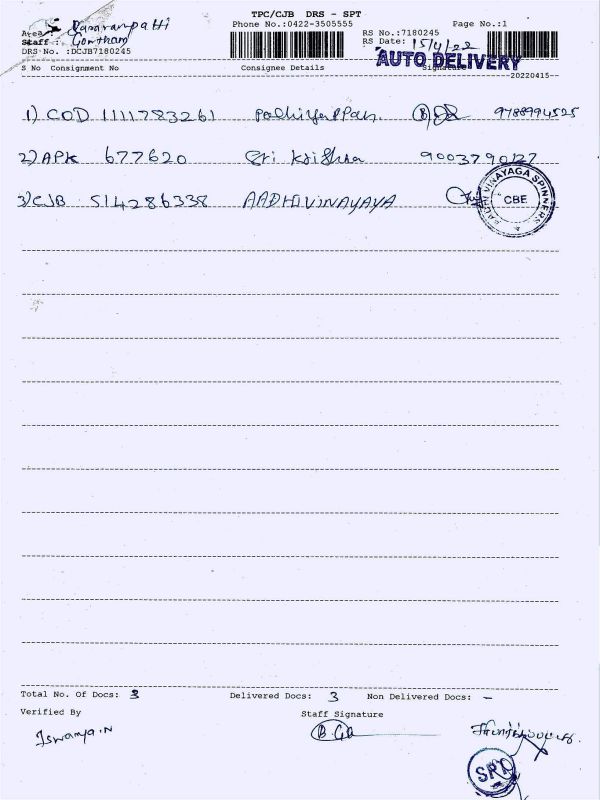 TPC/CJB DRS - SPT
Area : Ramaranpatti
Phone No.:0422-3505555
Page No.:1
Staff : Gowtham
RS No.:7180245
DRS No. :DCJB7180245
RS Date: 15/4/22
AUTO DELIVERY
S No Consignment No Consignee Details Signature
--20220415--
1) COD 1111783261 9788994525
2) APK 677620 Sri Krishna 9003790127
3) CJB 514286338 AADHIVINAYAYA
AADHI VINAYAGA SPINNERS
CBE
Total No. Of Docs: 3 Delivered Docs: 3 Non Delivered Docs: -
Verified By Staff Signature
Iswarya.N
SRT